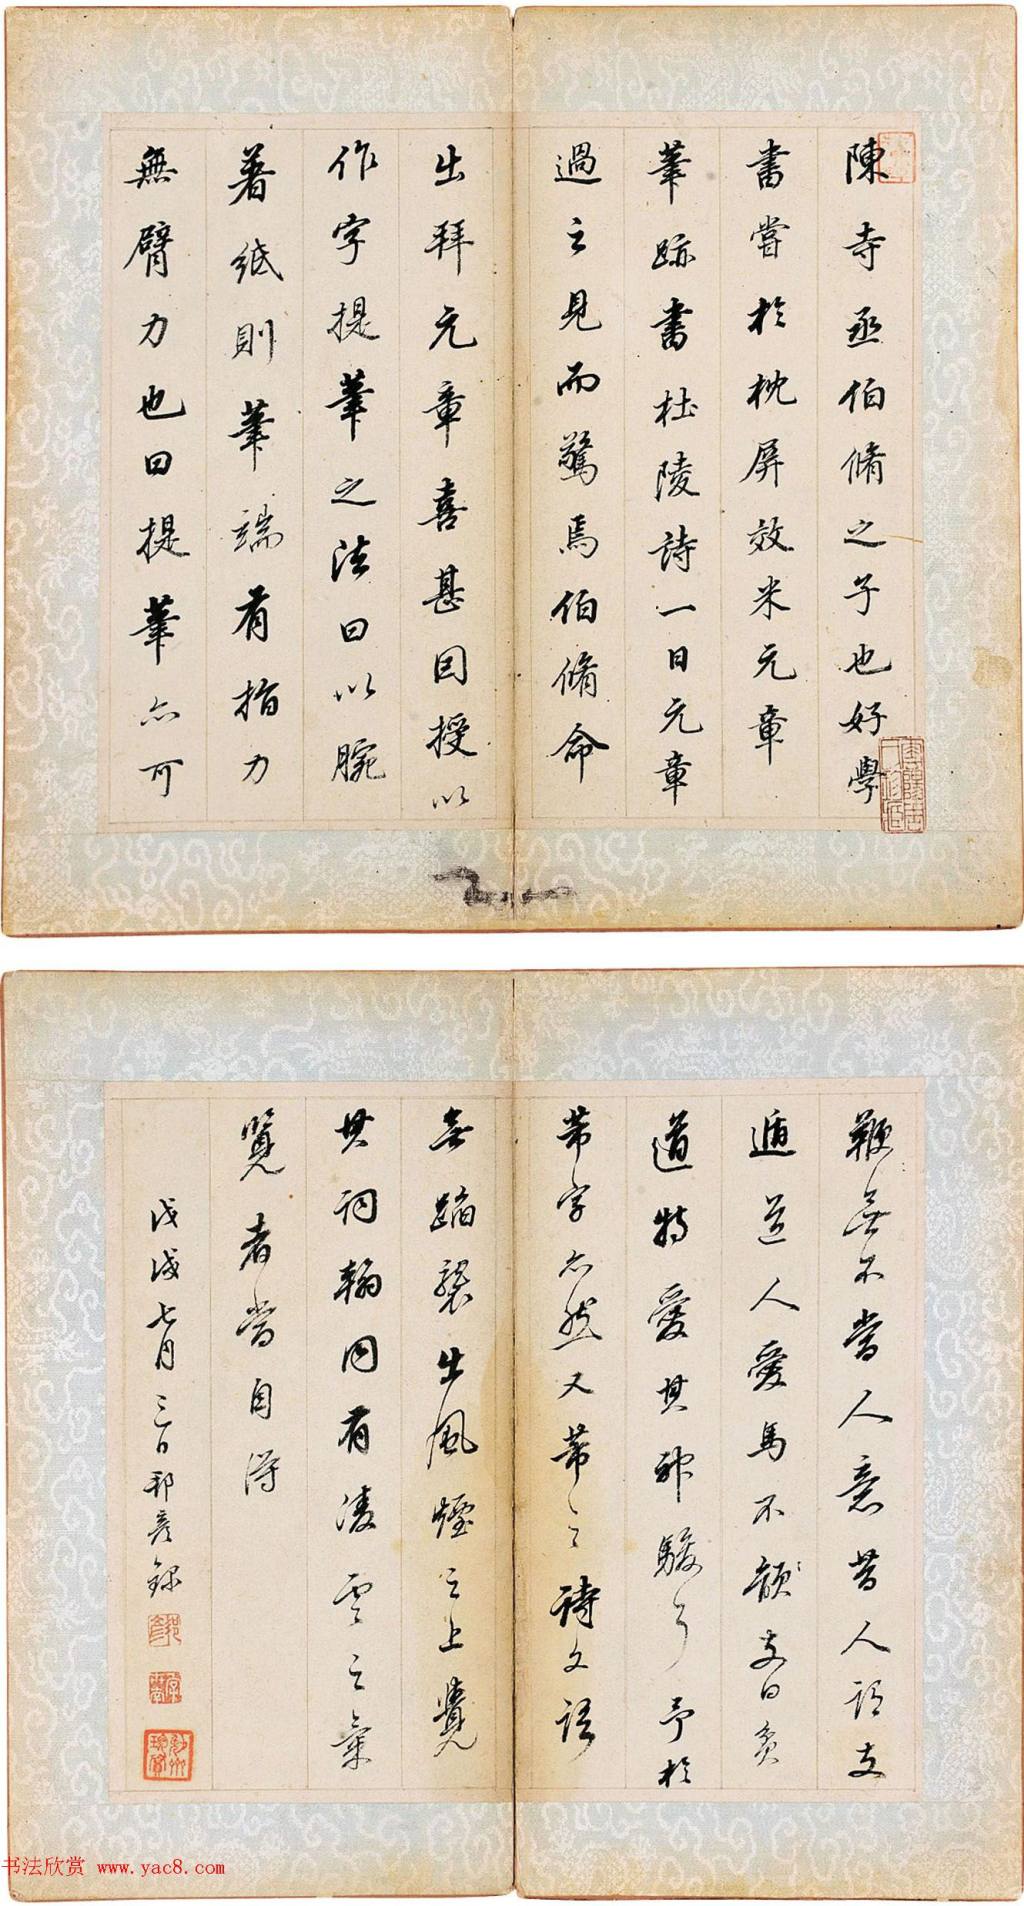 陳寺丞伯脩之子也好學
書嘗於枕屏效米元章
筆跡書杜陵詩一日元章
過之見而驚焉伯脩命
出拜元章喜甚因授以
作字提筆之法曰以腕
着紙則筆端有指力
無臂力也曰提筆亦可
鞭無不當人意昔人謂支
遁道人愛馬不韻支曰貧
道特愛其神駿耳予於
芾字亦然又芾之詩文語
無蹈襲出風煙之上覺
其詞翰同有凌雲之氣
覽者當自得
戊戌七月三日邦彦錄
书法欣赏 www.yac8.com